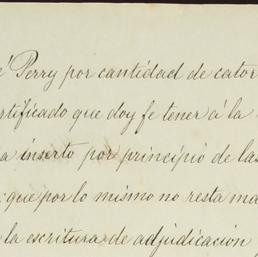 é Perry por cantidad de cator
rtificado que doy fe tener á la
a inserto por principio de las
que por lo mismo no resta ma
la escritura de adjudicación